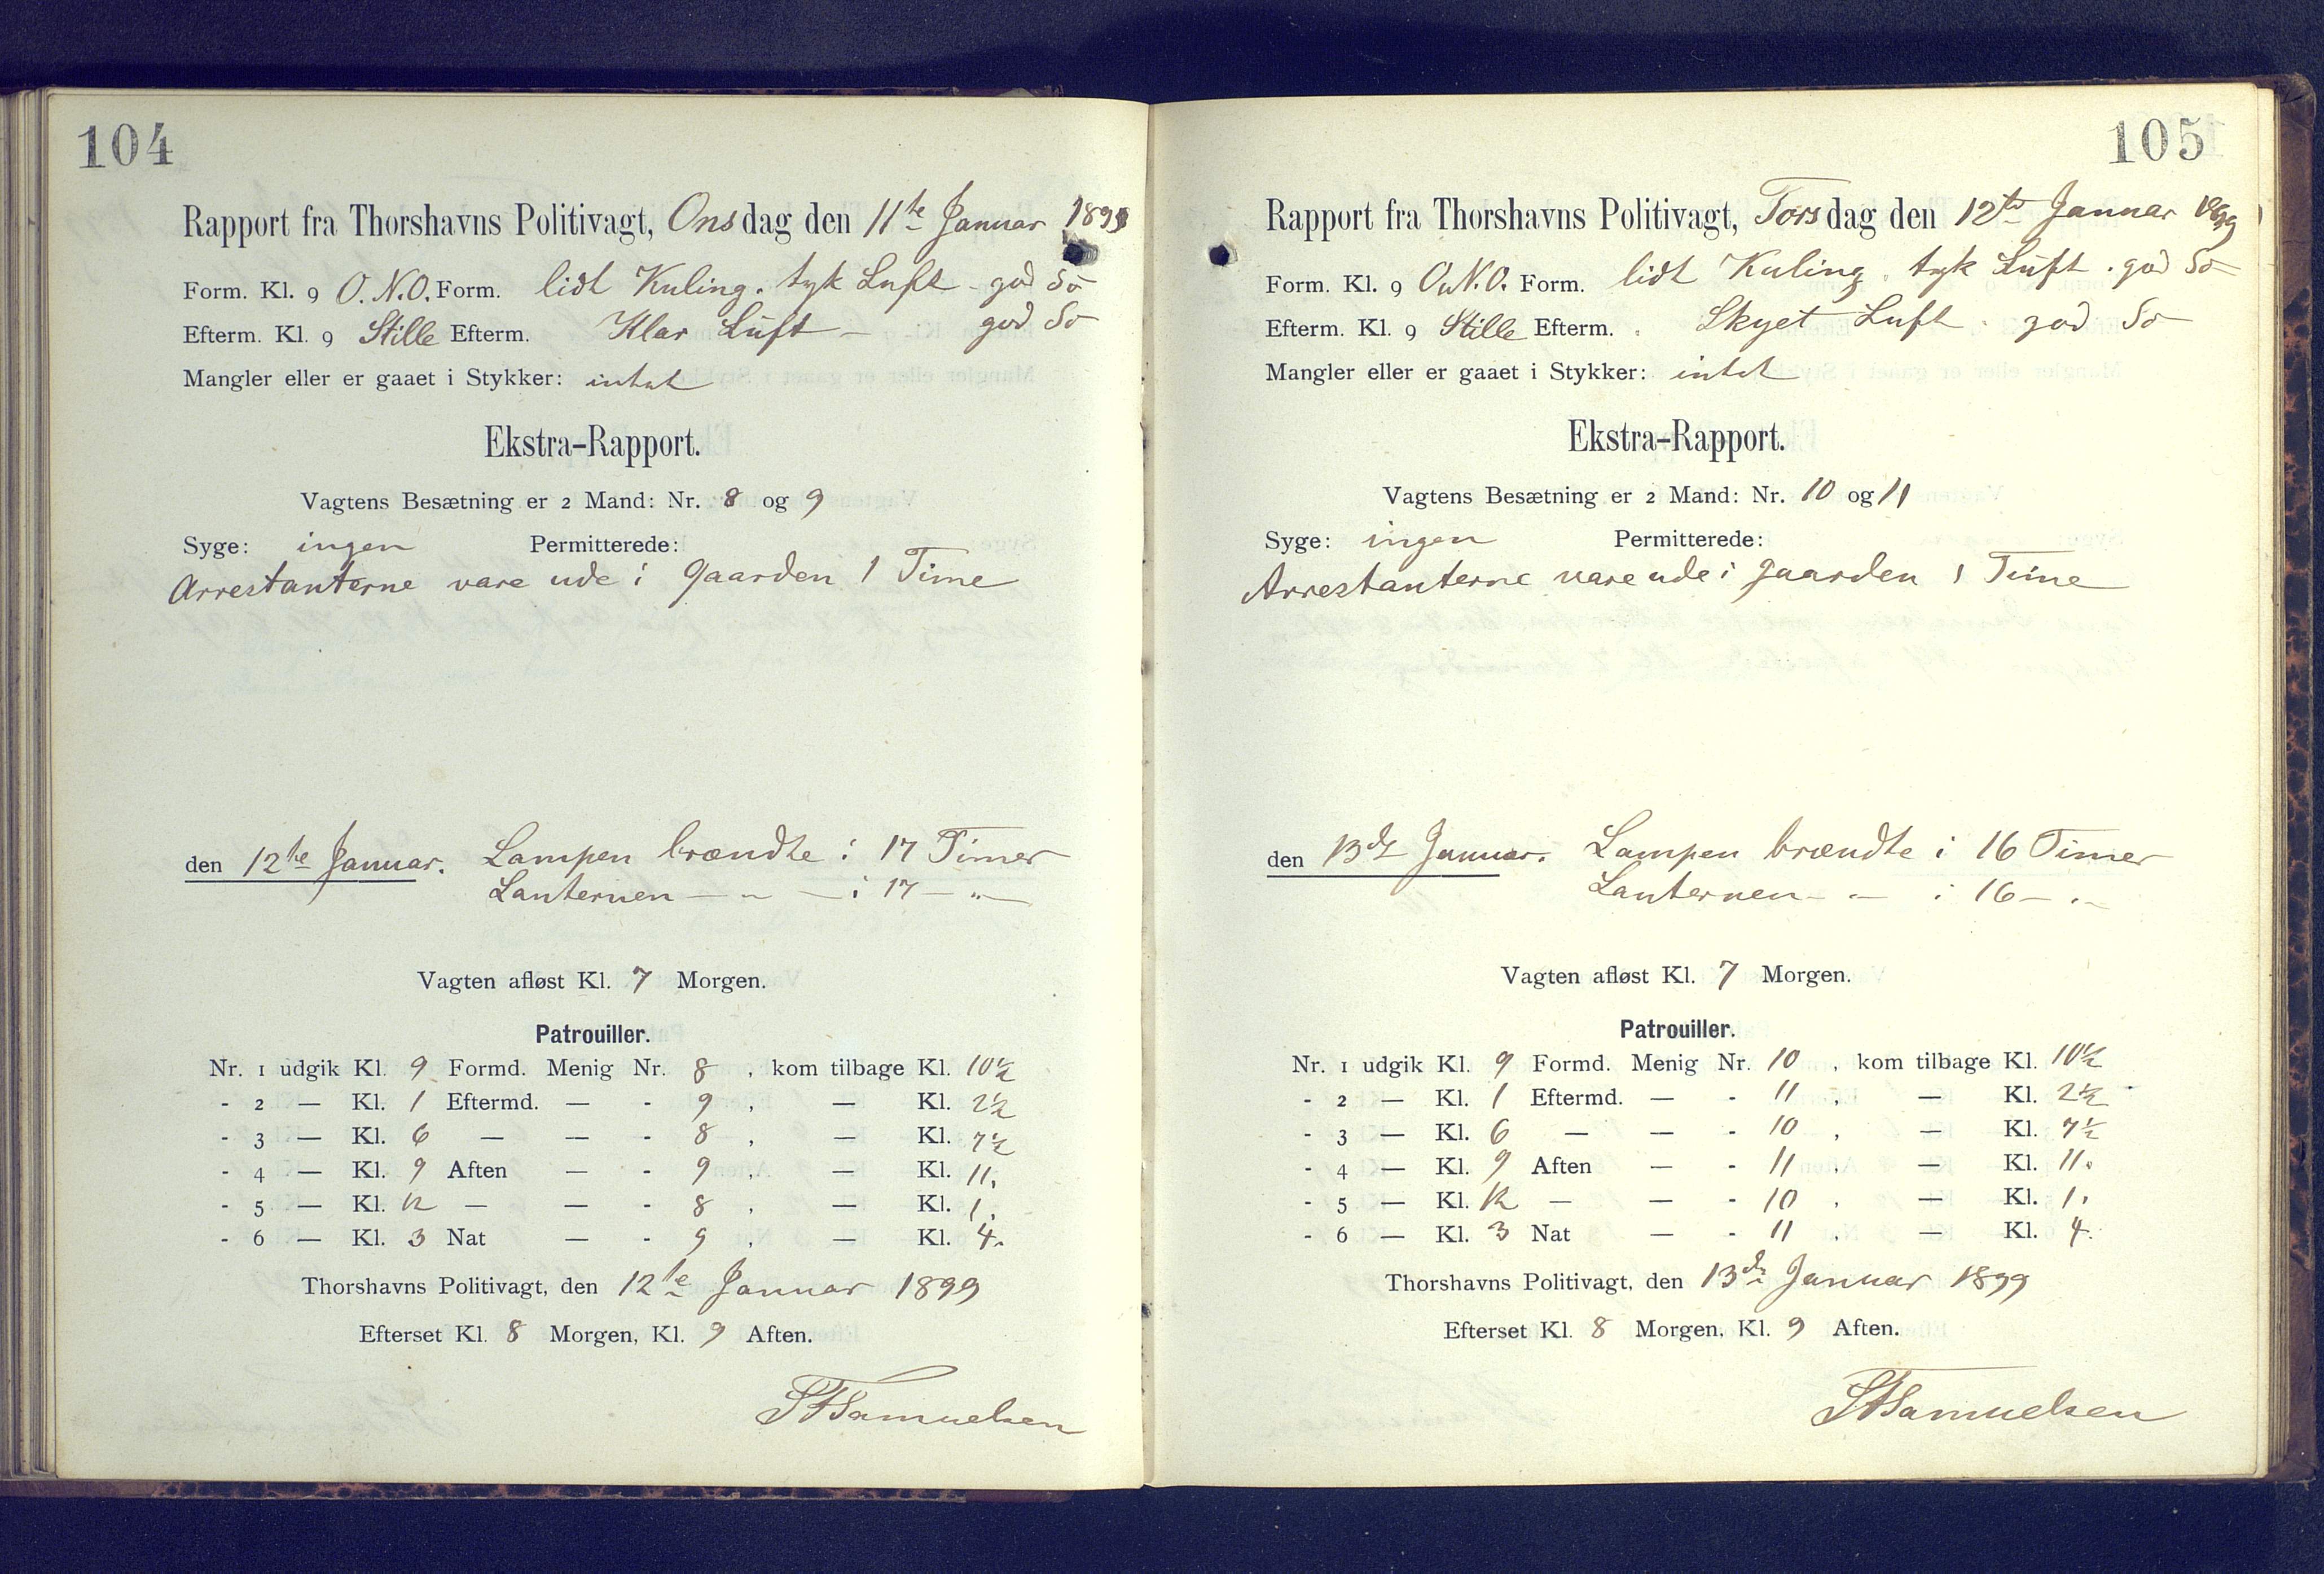 104
Rapport fra Thorshavns Politivagt, Onsdag den 11te Januar 1899
Form. Kl. 9 O.N.O. Form. lidt Kuling. tyk Luft - god Sø
Efterm. Kl. 9 Stille Efterm. Klar Luft - god Sø
Mangler eller er gaaet i Stykker: intet
Ekstra-Rapport.
Vagtens Besætning er 2 Mand: Nr. 8 og 9
Syge: ingen Permitterede:
Arrestanterne vare ude i Gaarden 1 Time
den 12te Januar. Lampen brændte i 17 Timer
Lanternen — " — i 17 — " —
Vagten afløst Kl. 7 Morgen.
Patrouiller.
Nr. 1 udgik Kl. 9 Formd. Menig Nr. 8 , kom tilbage Kl. 10½
- 2 — Kl. 1 Eftermd. — - 9 , — Kl. 2½
- 3 — Kl. 6 — — - 8 , — Kl. 7½
- 4 — Kl. 9 Aften — - 9 , — Kl. 11.
- 5 — Kl. 12 — — - 8 , — Kl. 1.
- 6 — Kl. 3 Nat — - 9 , — Kl. 4.
Thorshavns Politivagt, den 12te Januar 1899
Efterset Kl. 8 Morgen, Kl. 9 Aften.
SFSamuelsen
105
Rapport fra Thorshavns Politivagt, Torsdag den 12te Januar 1899
Form. Kl. 9 O.N.O. Form. lidt Kuling. tyk Luft. god Sø
Efterm. Kl. 9 Stille Efterm. Skyet Luft god Sø
Mangler eller er gaaet i Stykker: intet
Ekstra-Rapport.
Vagtens Besætning er 2 Mand: Nr. 10 og 11
Syge: ingen Permitterede:
Arrestanterne vare ude i gaarden 1 Time
den 13de Januar. Lampen brændte i 16 Timer
Lanternen - " — i 16 — " —
Vagten afløst Kl. 7 Morgen.
Patrouiller.
Nr. 1 udgik Kl. 9 Formd. Menig Nr. 10 , kom tilbage Kl. 10½
- 2 — Kl. 1 Eftermd. — - 11 , — Kl. 2½
- 3 — Kl. 6 — — - 10 , — Kl. 7½
- 4 — Kl. 9 Aften — - 11 , — Kl. 11.
- 5 — Kl. 12 — — - 10 , — Kl. 1.
- 6 — Kl. 3 Nat — - 11 , — Kl. 4.
Thorshavns Politivagt, den 13de Januar 1899
Efterset Kl. 8 Morgen, Kl. 9 Aften.
SFSamuelsen